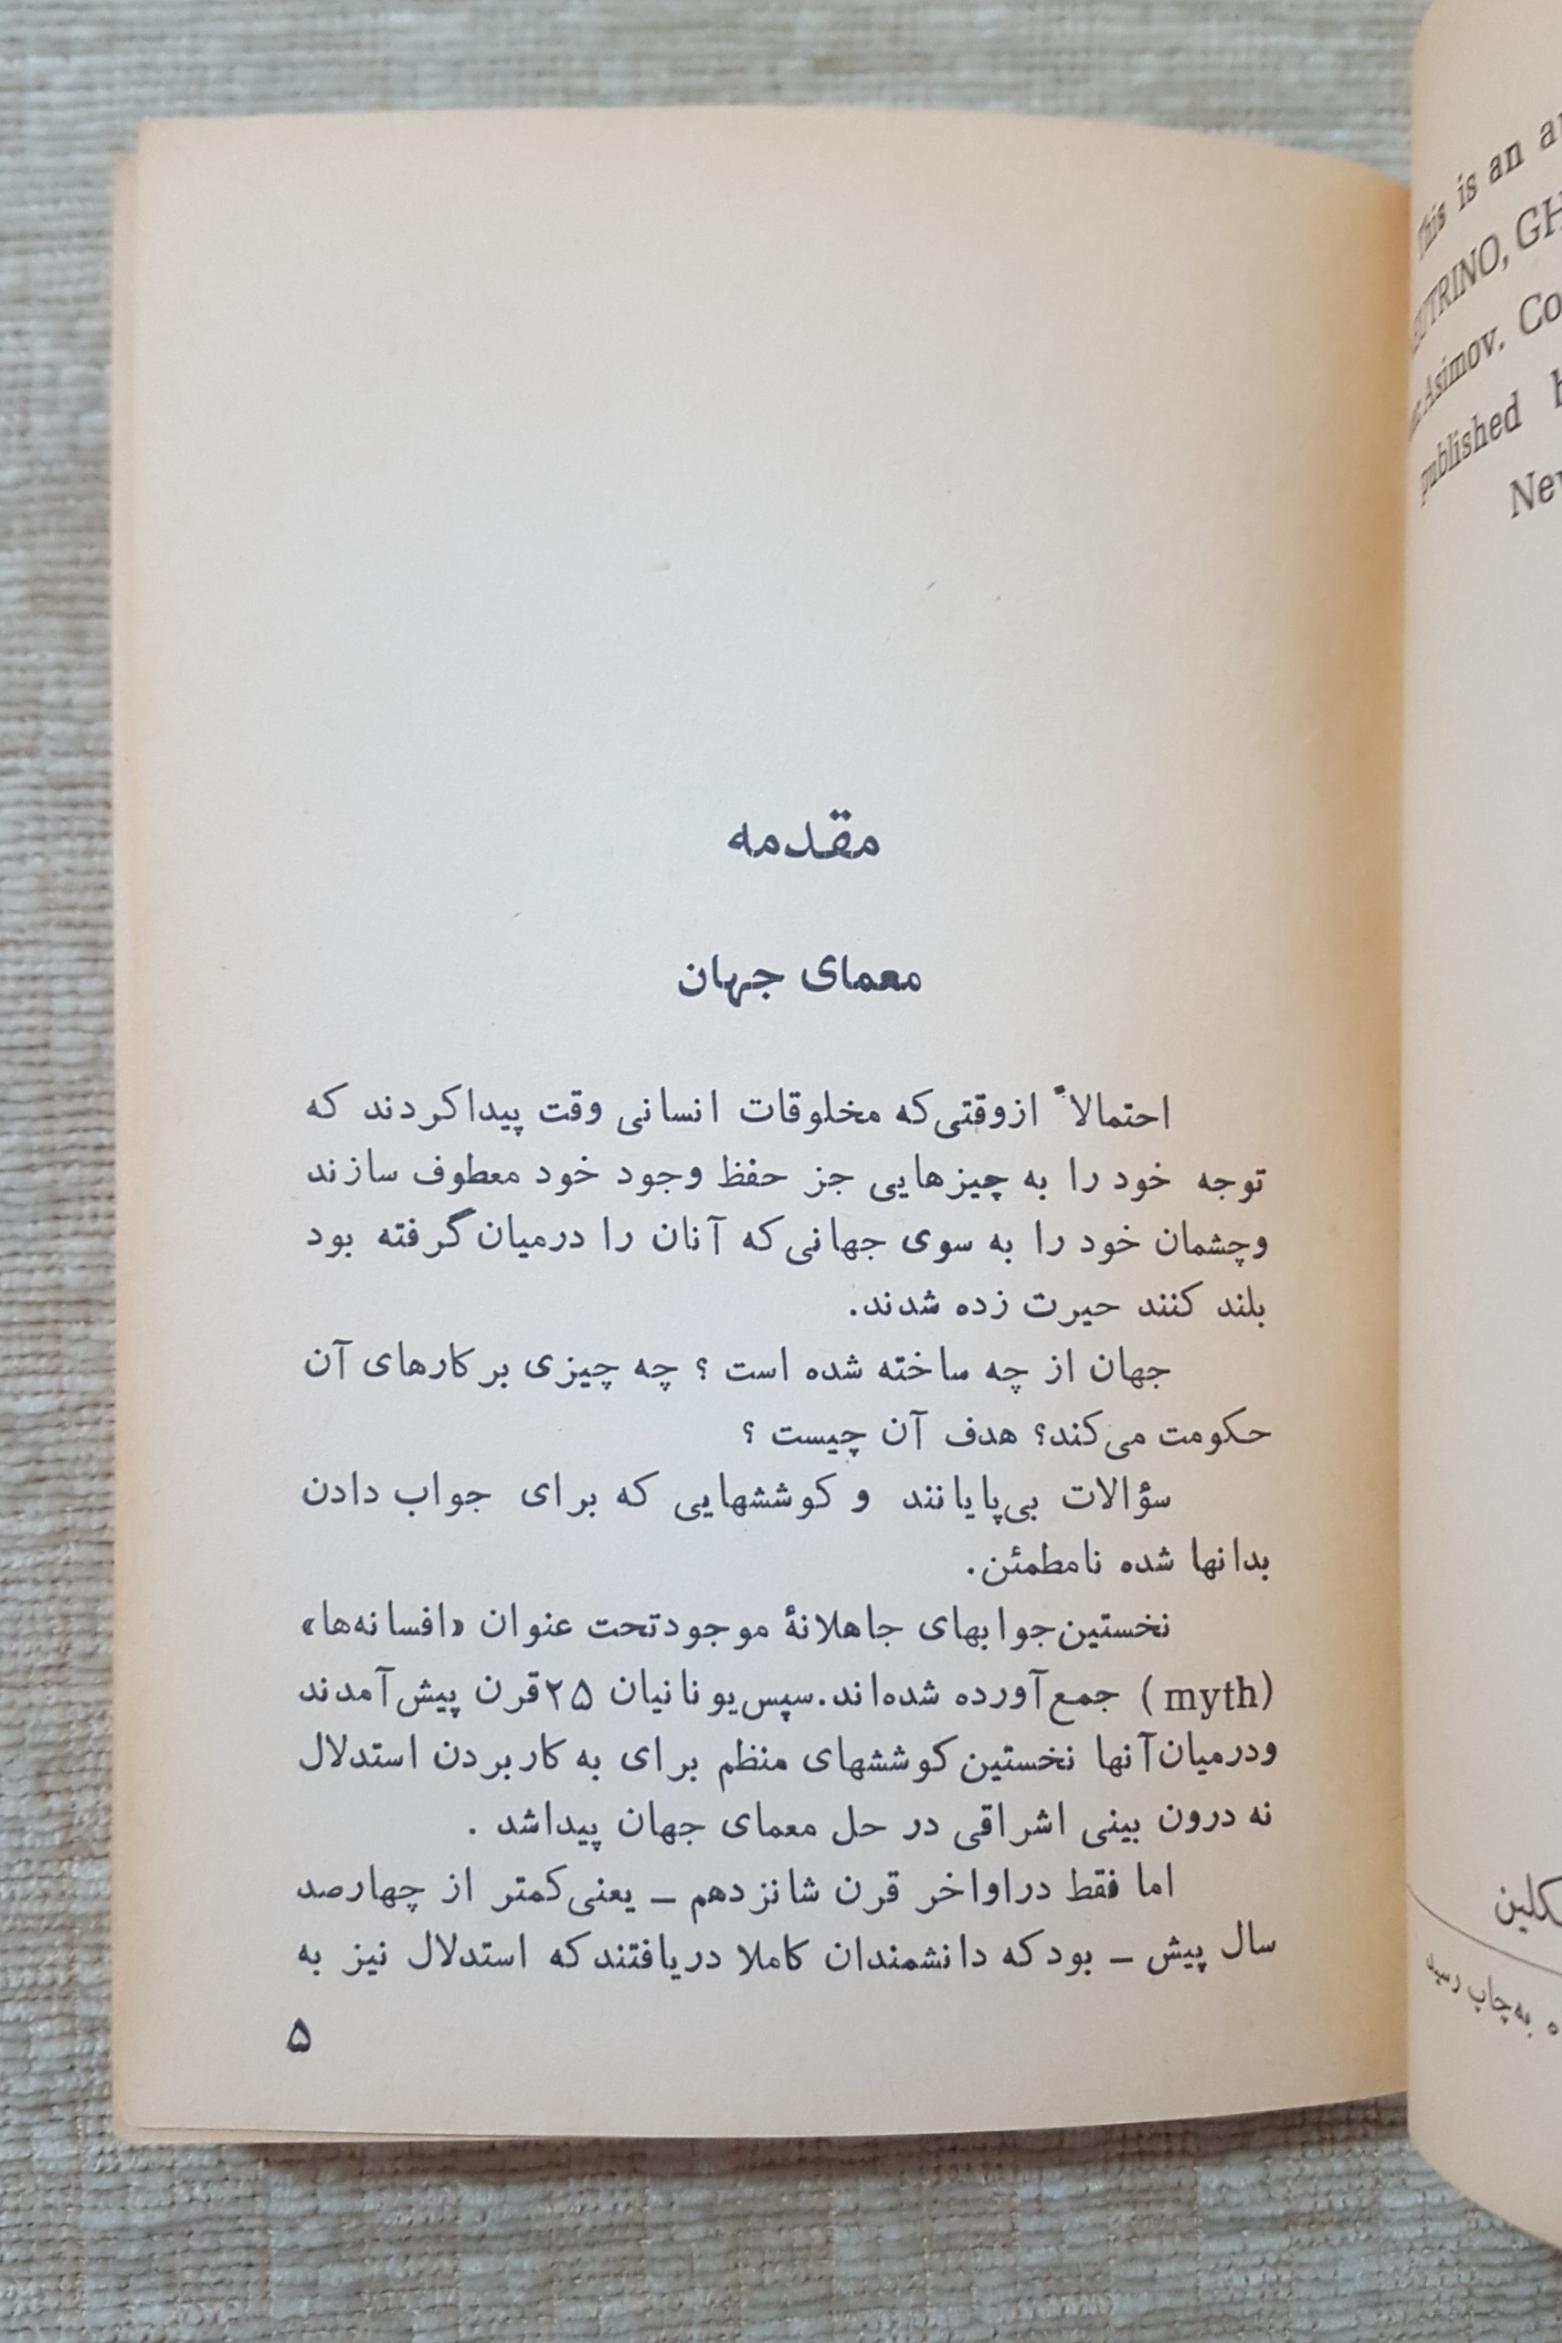 مقدمه
معمای جهان
احتمالاً ازوقتی‌که مخلوقات انسانی وقت پیداکردند که
توجه خود را به چیزهایی جز حفظ وجود خود معطوف سازند
وچشمان خود را به سوی جهانی‌که آنان را درمیان‌گرفته بود
بلند کنند حیرت زده شدند.
جهان از چه ساخته شده است ؟ چه چیزی بر کارهای آن
حکومت می‌کند؟ هدف آن چیست ؟
سؤالات بی‌پایانند و کوششهایی که برای جواب دادن
بدانها شده نامطمئن.
نخستین‌جوابهای جاهلانهٔ موجودتحت عنوان «افسانه‌ها»
(myth) جمع‌آورده شده‌اند.سپس‌یونانیان ۲۵قرن پیش‌آمدند
ودرمیان‌آنها نخستین‌کوششهای منظم برای به کاربردن استدلال
نه درون بینی اشراقی در حل معمای جهان پیداشد .
اما فقط دراواخر قرن شانزدهم ــ یعنی‌کمتر از چهارصد
سال پیش ــ بودکه دانشمندان کاملا دریافتندکه استدلال نیز به
۵
This is an
TRINO,
Asimov.
published
به‌چاپ